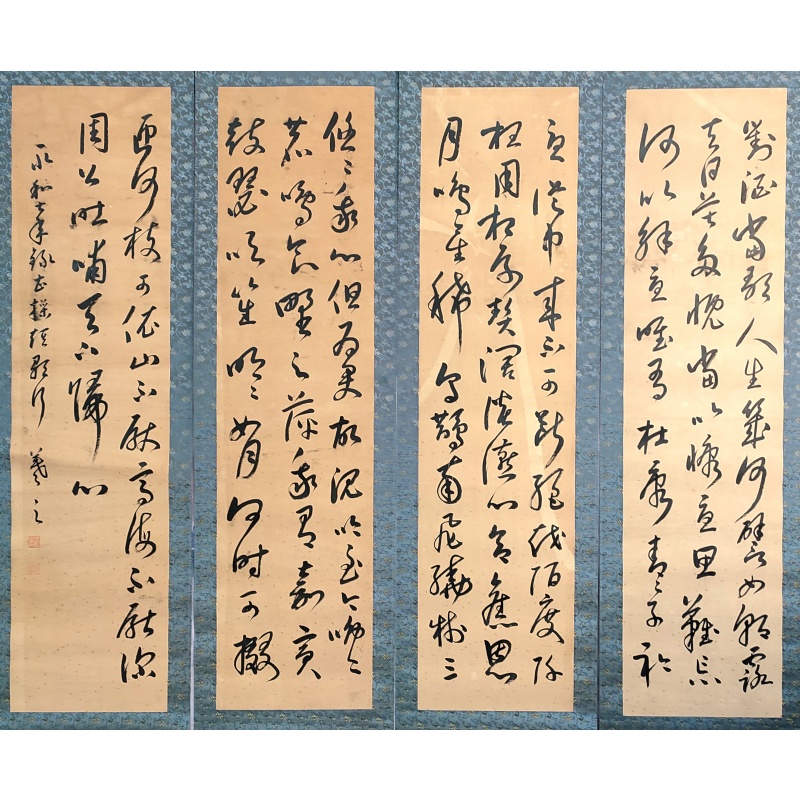 對酒當歌人生幾何譬如朝露
去日苦多慨當以慷憂思難忘
何以解憂唯有杜康青〻子衿
憂從中來不可斷絕越陌度阡
枉用相存契闊談讌心念舊恩
月明星稀烏鵲南飛繞樹三
悠〻我心但為君故沈吟至今呦〻
鹿鳴食野之苹我有嘉賓
鼓瑟吹笙明〻如月何時可掇
匝何枝可依山不厭高海不厭深
周公吐哺天下歸心
永和年短歌行 羲之